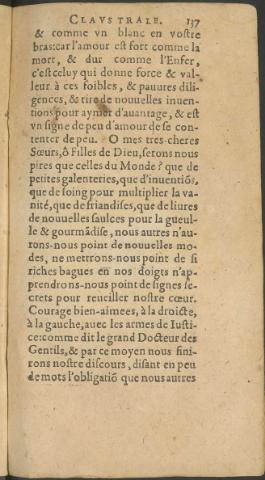 CLAVSTRALE. 137
& comme vn blanc en vostre
bras:car l'amour est fort comme la
mort, & dur comme l'Enfer,
c'est celuy qui donne force & val-
leur à ces foibles, & pauures dili-
gences, & tire de nouuelles inuen-
tions pour aymer d'auantage, & est
vn signe de peu d'amour de se con-
tenter de peu. O mes tres-cheres
Sœurs, ô Filles de Dieu, serons nous
pires que celles du Monde? que de
petites galenteries, que d'inuentiõs,
que de soing pour multiplier la va-
nité, que de friandises, que de liures
de nouuelles saulces pour la gueul-
le & gourmãdise, nous autres n'au-
rons-nous point de nouuelles mo-
des, ne mettrons-nous point de si
riches bagues en nos doigts n'ap-
prendrons-nous point de signes se-
crets pour reueiller nostre cœur.
Courage bien-aimees, à la droicte,
à la gauche, auec les armes de Iusti-
ce:comme dit le grand Docteur des
Gentils, & par ce moyen nous fini-
rons nostre discours, disant en peu
de mots l'obligatiõ que nous autres